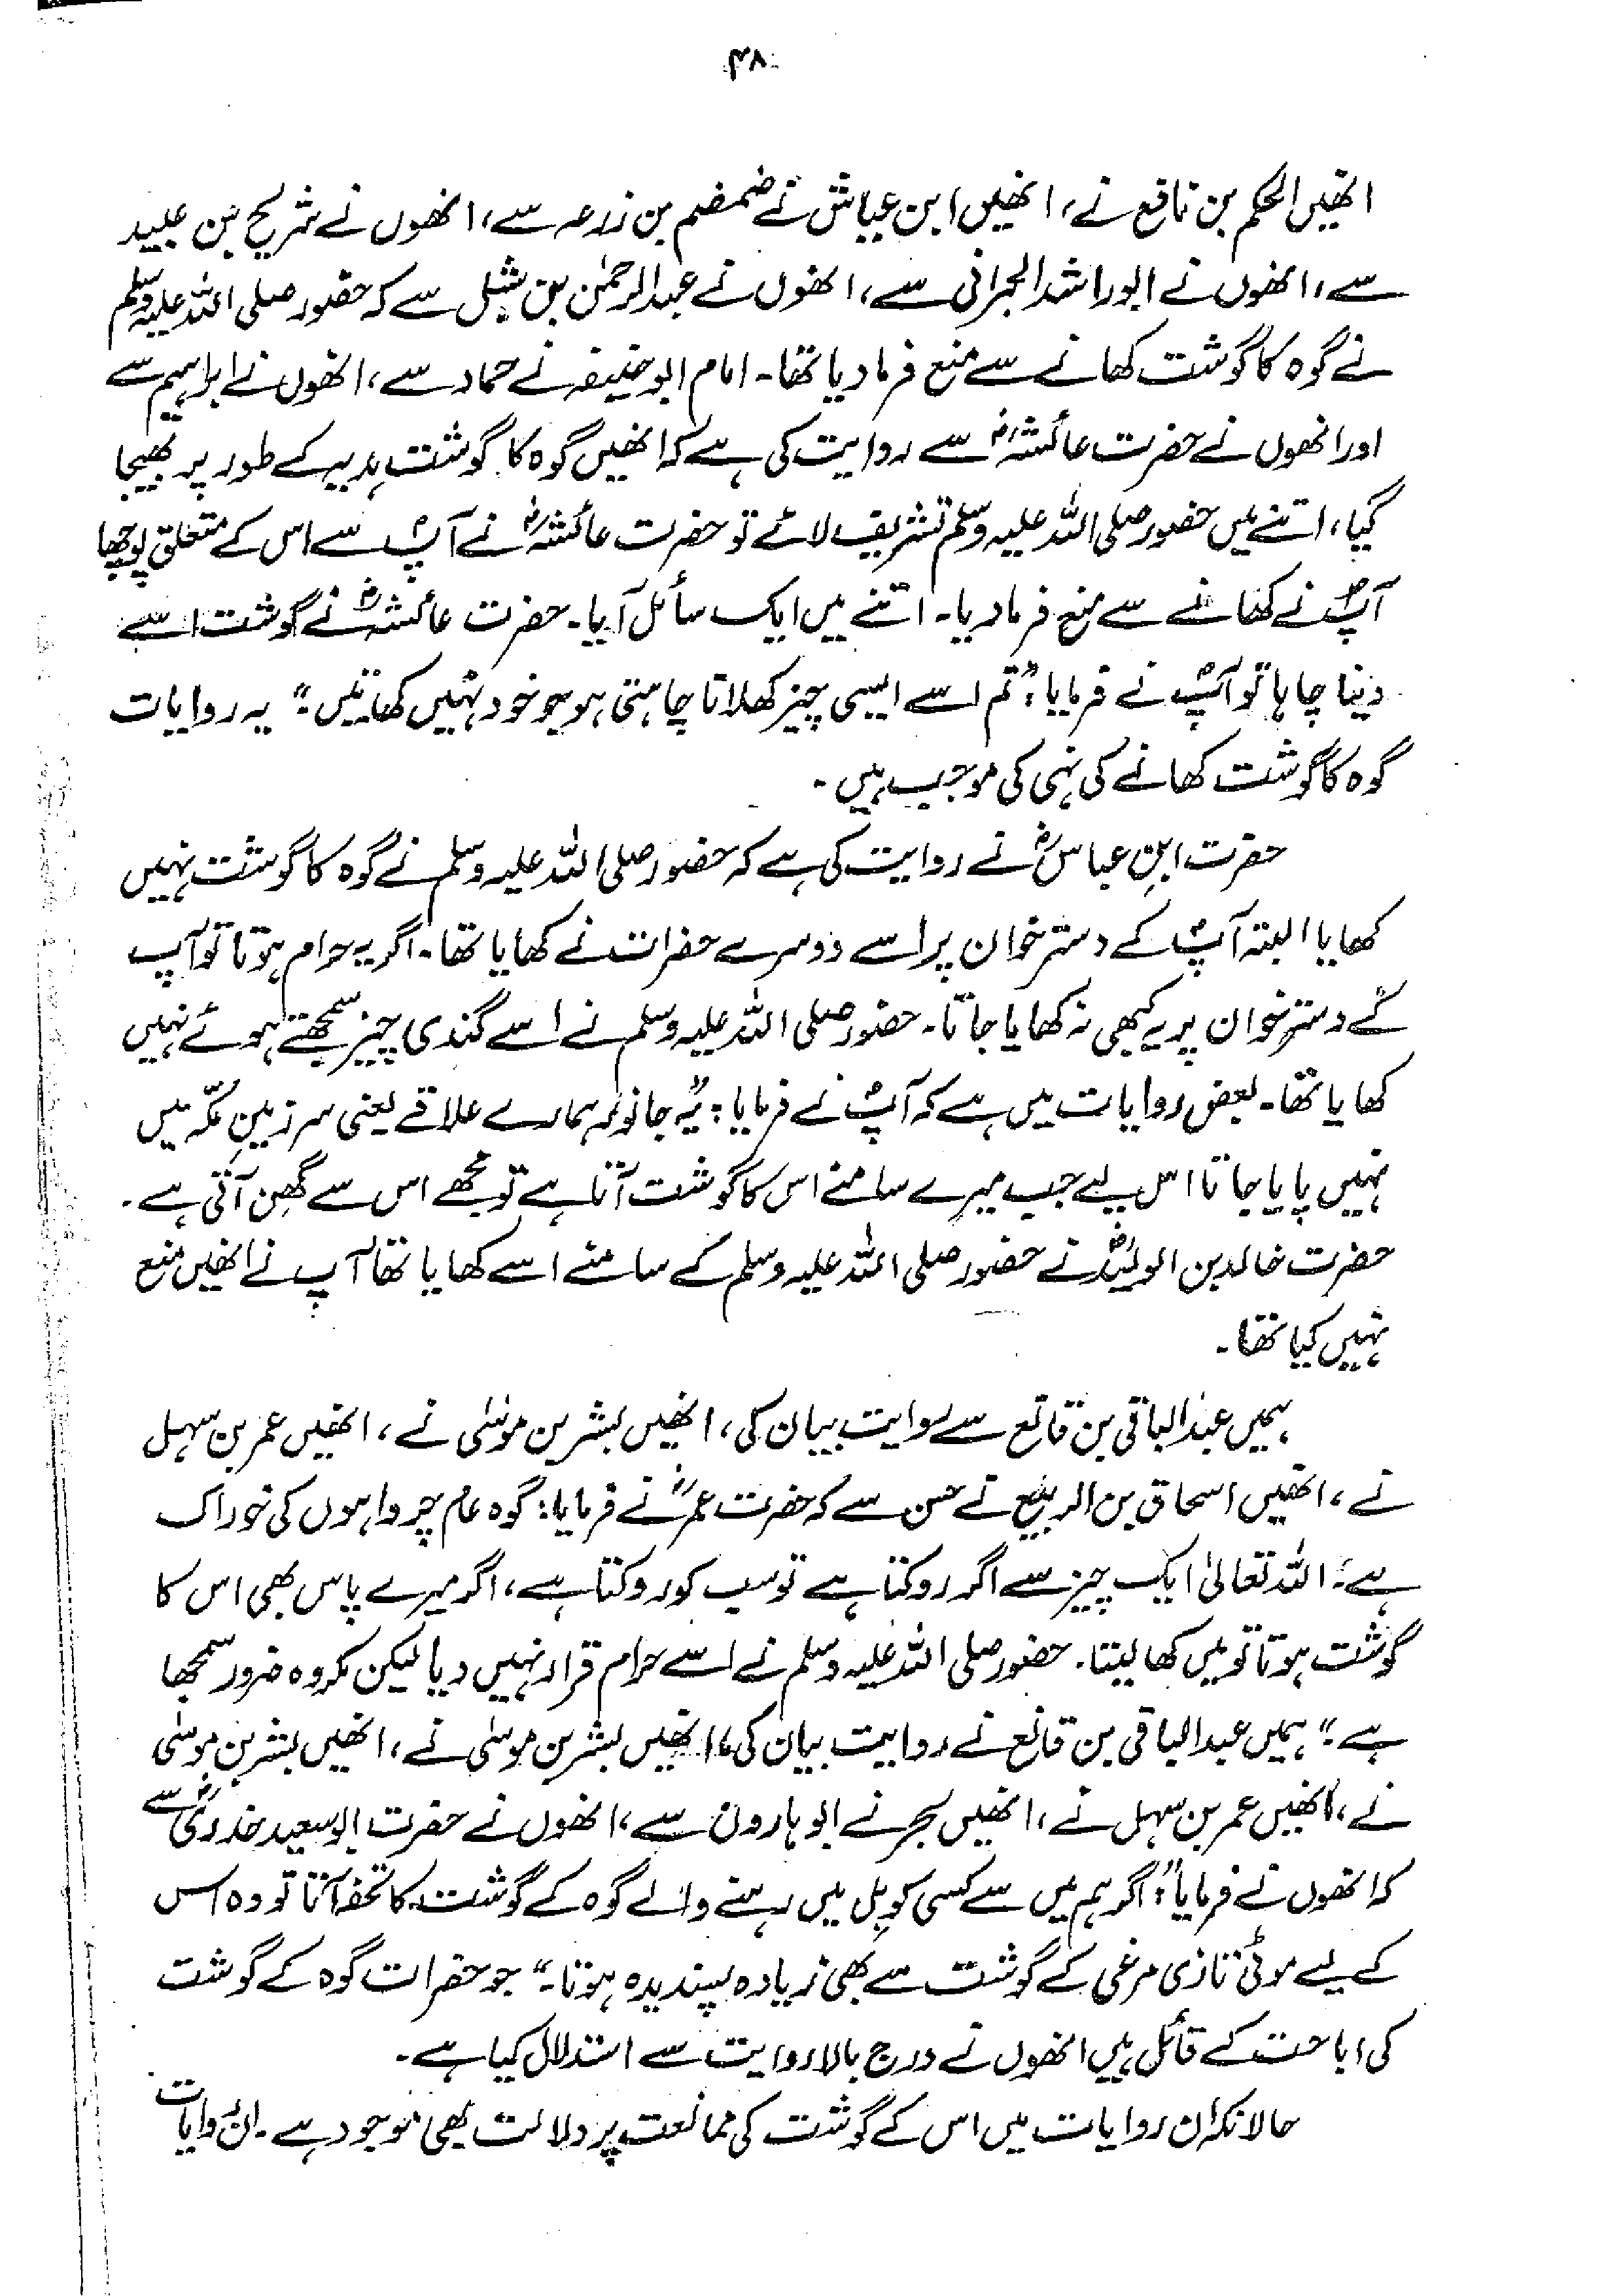 ۴۸
انھیں الحکم بن نافع نے، انھیں ابن عیاش نے ضمضم بن زرعہ سے، انھوں نے شریح بن عبید
سے، انھوں نے ابوراشد الحبرانی سے، انھوں نے عبدالرحمٰن بن شبل سے کہ حضور صلی اللہ علیہ وسلم
نے گوہ کا گوشت کھانے سے منع فرما دیا تھا۔ امام ابو حنیفہ نے حماد سے، انھوں نے ابراہیم سے
اور انھوں نے حضرت عائشہؓ سے روایت کی ہے کہ انھیں گوہ کا گوشت ہدیہ کے طور پر بھیجا
گیا، اتنے میں حضور صلی اللہ علیہ وسلم تشریف لائے تو حضرت عائشہؓ نے آپؐ سے اس کے متعلق پوچھا
آپؐ نے کھانے سے منع فرما دیا۔ اتنے میں ایک سائل آیا۔ حضرت عائشہؓ نے گوشت اسے
دینا چاہا تو آپؐ نے فرمایا: ”تم اسے ایسی چیز کھلانا چاہتی ہو جو خود نہیں کھاتیں“۔ یہ روایات
گوہ کا گوشت کھانے کی نہی کی موجب ہیں۔
حضرت ابنِ عباسؓ نے روایت کی ہے کہ حضور صلی اللہ علیہ وسلم نے گوہ کا گوشت نہیں
کھایا البتہ آپؐ کے دسترخوان پر اسے دوسرے حضرات نے کھایا تھا۔ اگر یہ حرام ہوتا تو آپ
کے دسترخوان پر یہ کبھی نہ کھایا جاتا۔ حضور صلی اللہ علیہ وسلم نے اسے گندی چیز سمجھتے ہوئے نہیں
کھایا تھا۔ بعض روایات میں ہے کہ آپؐ نے فرمایا: ”یہ جانور ہمارے علاقے یعنی سرزمینِ مکّہ میں
نہیں پایا جاتا اس لیے جب میرے سامنے اس کا گوشت آتا ہے تو مجھے اس سے گھِن آتی ہے۔
حضرت خالد بن الولیدؓ نے حضور صلی اللہ علیہ وسلم کے سامنے اسے کھایا تھا آپ نے انھیں منع
نہیں کیا تھا۔
ہمیں عبدالباقی بن قانع سے روایت بیان کی، انھیں بشر بن موسٰی نے، انھیں عمر بن سہل
نے، انھیں اسحاق بن الربیع نے حسن سے کہ حضرت عمرؓ نے فرمایا: گوہ عام چرواہوں کی خوراک
ہے، اللہ تعالیٰ ایک چیز سے اگر روکتا ہے تو سب کو روکتا ہے، اگر میرے پاس بھی اس کا
گوشت ہوتا تو میں کھا لیتا۔ حضور صلی اللہ علیہ وسلم نے اسے حرام قرار نہیں دیا لیکن مکروہ ضرور سمجھا
ہے۔“ ہمیں عبدالباقی بن قانع نے روایت بیان کی، انھیں بشر بن موسٰی نے، انھیں بشر بن موسٰی
نے، انھیں عمر بن سہل نے، انھیں بحر نے ابو ہارون سے، انھوں نے حضرت ابوسعید خدریؓ سے
کہ انھوں نے فرمایا: ”اگر ہم میں سے کسی کو بِل میں رہنے والے گوہ کے گوشت کا تحفہ آتا تو وہ اس
کے لیے موٹی تازی مرغی کے گوشت سے بھی زیادہ پسندیدہ ہوتا۔“ جو حضرات گوہ کے گوشت
کی اباحت کے قائل ہیں انھوں نے درج بالا روایت سے استدلال کیا ہے۔
حالانکہ ان روایات میں اس کے گوشت کی ممانعت پر دلالت بھی موجود ہے۔ ان روایات